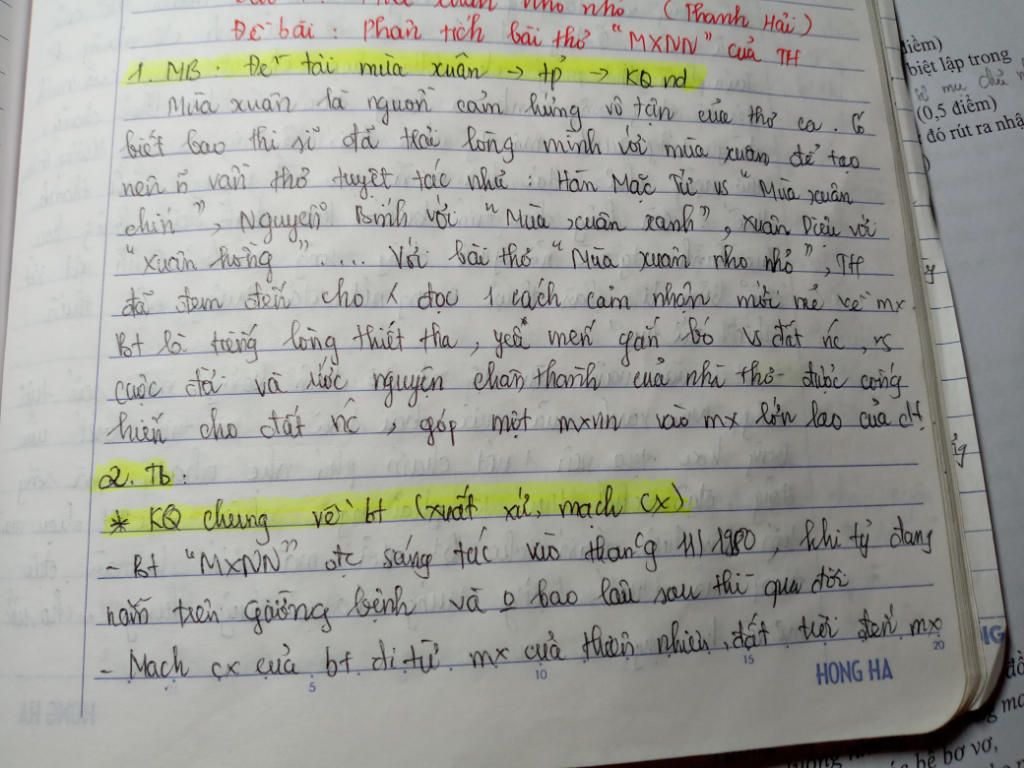 xuân nho nhỏ (Thanh Hải)
Đề bài : Phân tích bài thơ "MXNN" của TH
1. MB : Đề tài mùa xuân → tp → KQ nd
Mùa xuân là nguồn cảm hứng vô tận của thơ ca. Có
biết bao thi sĩ đã trải lòng mình với mùa xuân để tạo
nên n vần thơ tuyệt tác như : Hàn Mặc Tử vs "Mùa xuân
chín", Nguyễn Bính với "Mùa xuân xanh", Xuân Diệu với
"Xuân hồng".... Với bài thơ "Mùa xuân nho nhỏ", TH
đã đem đến cho đọc 1 cách cảm nhận mới mẻ về mx.
Bt là tiếng lòng thiết tha, yêu mến gắn bó vs đất nc, vs
cuộc đời và ước nguyện chân thành của nhà thơ được cống
hiến cho đất nc, góp một mxnn vào mx lớn lao của dt.
2. Tb :
* KQ chung về bt (xuất xứ, mạch cx)
- Bt "MXNN" đc sáng tác vào tháng 11/1980, khi đang
nằm trên giường bệnh và bao lâu sau thì qua đời
- Mạch cx của bt đi từ mx của thiên nhiên, đất trời đến mx
5 10 15 20
HONG HA
điểm)
biệt lập trong
(0,5 điểm)
đó rút ra nhậ
bơ vơ,